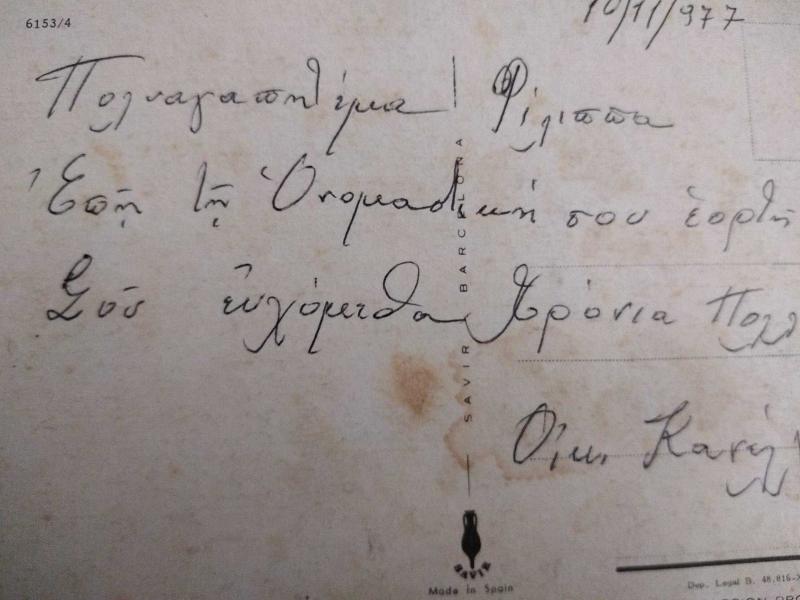 6153/4
10/11/977
Πολυαγαπητέ μα Φίλιππα
Ἐπῇ τῇ Ὀνομαστικῇ σου ἑορτῇ
Σοῦ εὐχόμεθα Χρόνια Πολλ
Οἰκ. Κανελ
SAVIR BARCELONA
SAVIR
Made in Spain
Dep. Legal B. 48.016-X